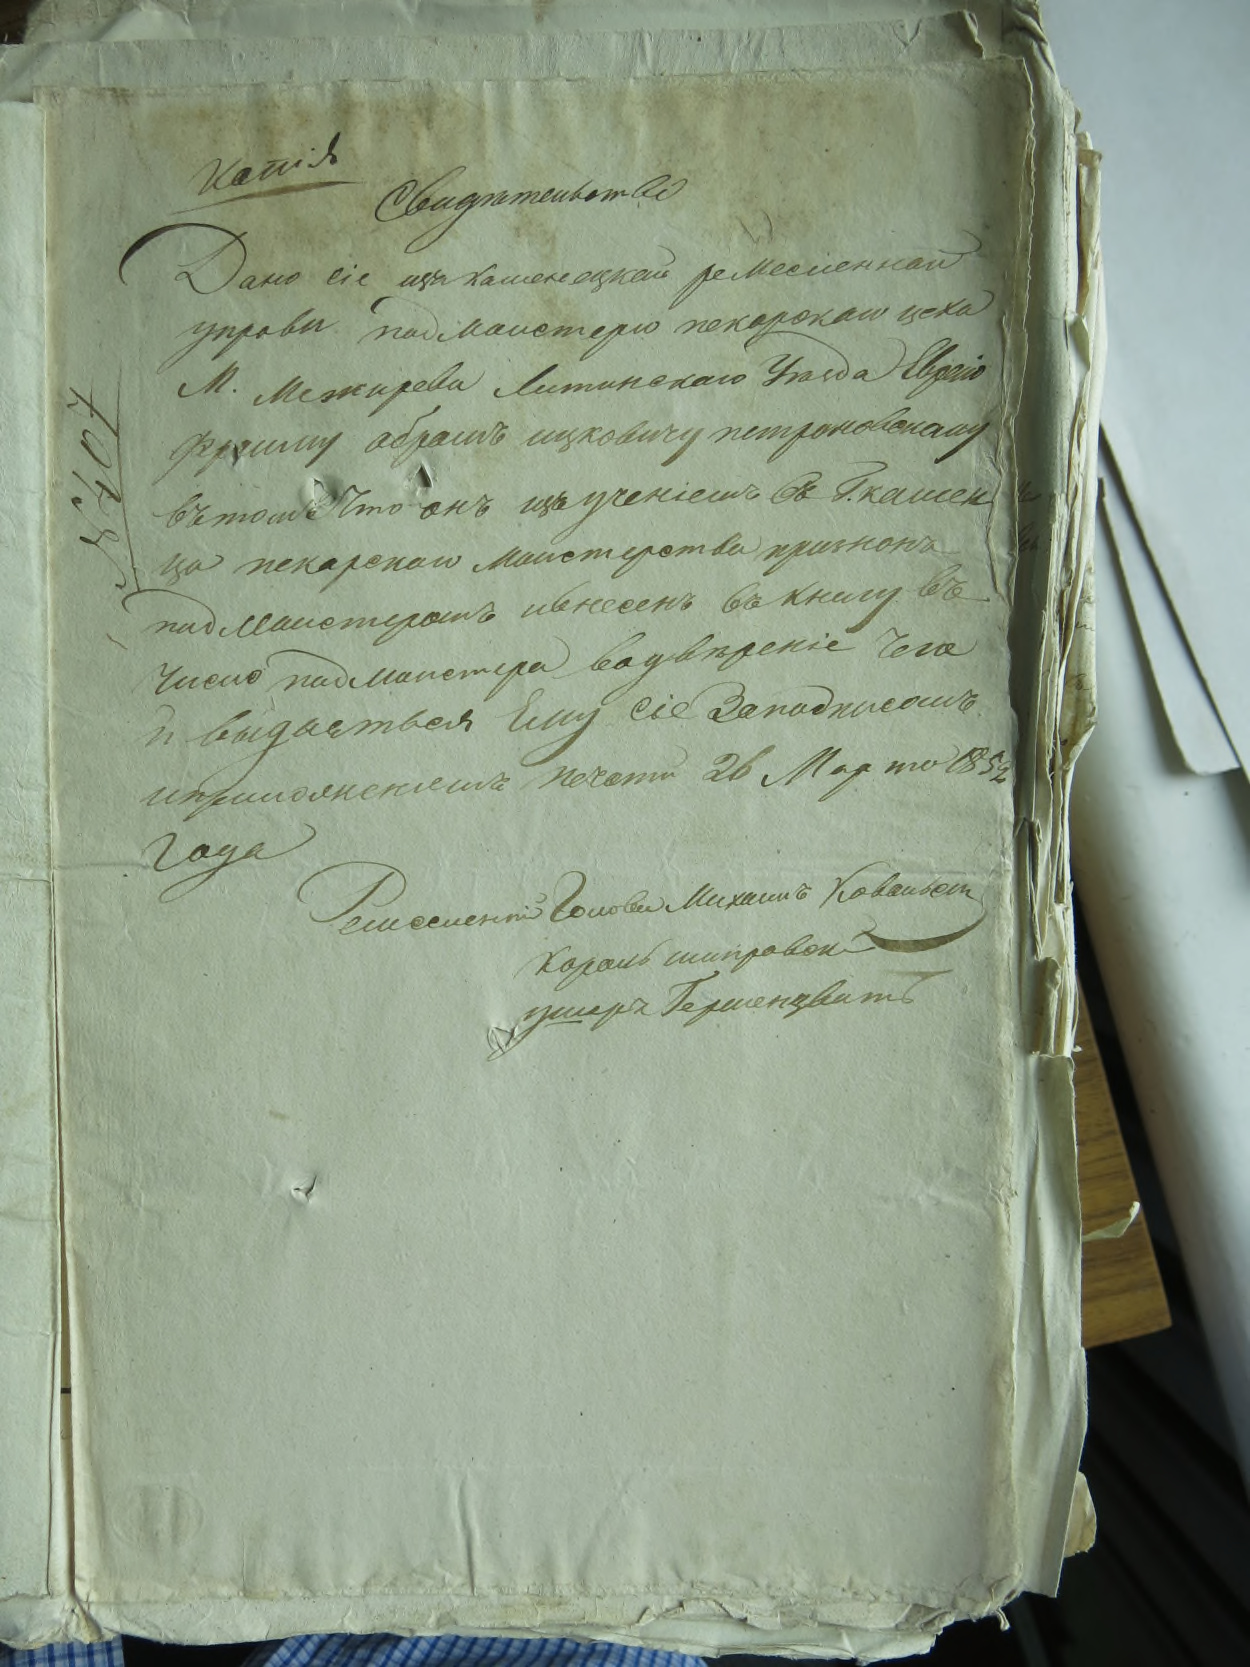 Копія
Свидѣтельство
Дано сіе изъ Каменецкой ремесленной
управы подмаистерю пекарскаго цеха
М. Межирева Литинскаго Уѣзда Еврею
абрамъ ицковичу петрановскому
въ томъ Что онъ изъ ученіемъ въ Г. камен
ца пекарскаго маистерства признонъ
подмаистеромъ ивнесенъ въ книгу въ
Число подмаистера водвѣреніе Чего
и выдаетьея Ему сіе Заподписомъ
печати 26 Марта 1852
Года
Ремесленній Голова Михаилъ
Кароль
ушеръ Гершенцвитъ
№ 407